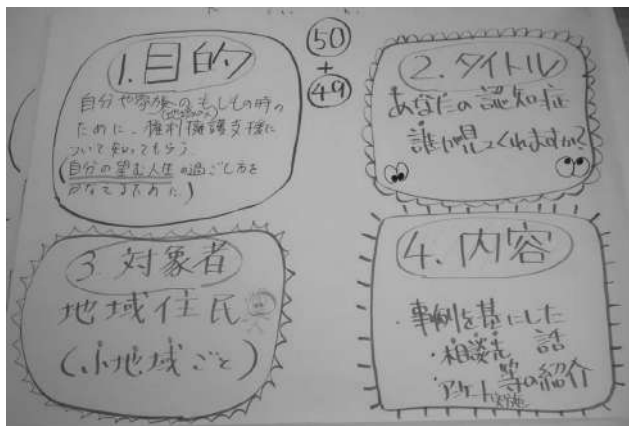 50
+
49
1. 目的
自分や家族へのもしもの時の
(地域の人)
ために、権利擁護支援に
ついて知ってもらう
(自分の望む人生の過ごし方を
かなえるために)
2. タイトル
あなたの認知症
誰が見てくれますか?
3. 対象者
地域住民
(小地域ごと)
4. 内容
・事例を基にした
話
・相談先
等の紹介
・アンケート実施